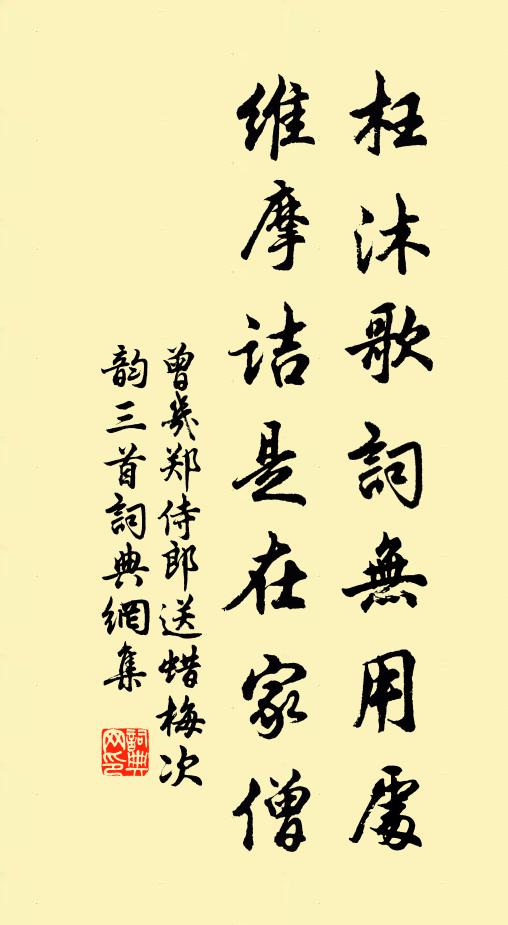 枉沐歌詞無用處
維摩詰是在家僧
曾幾郑侍郎送蜡梅次
韵三首詞典網集
詞典
网印